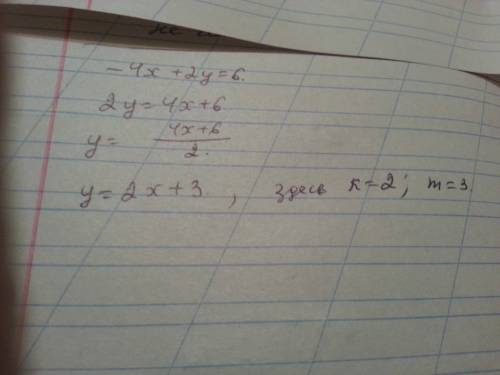 -4x+2y=6.
2y=4x+6
y= 4x+6
2.
y=2x+3. , здесь к=2; m=3.